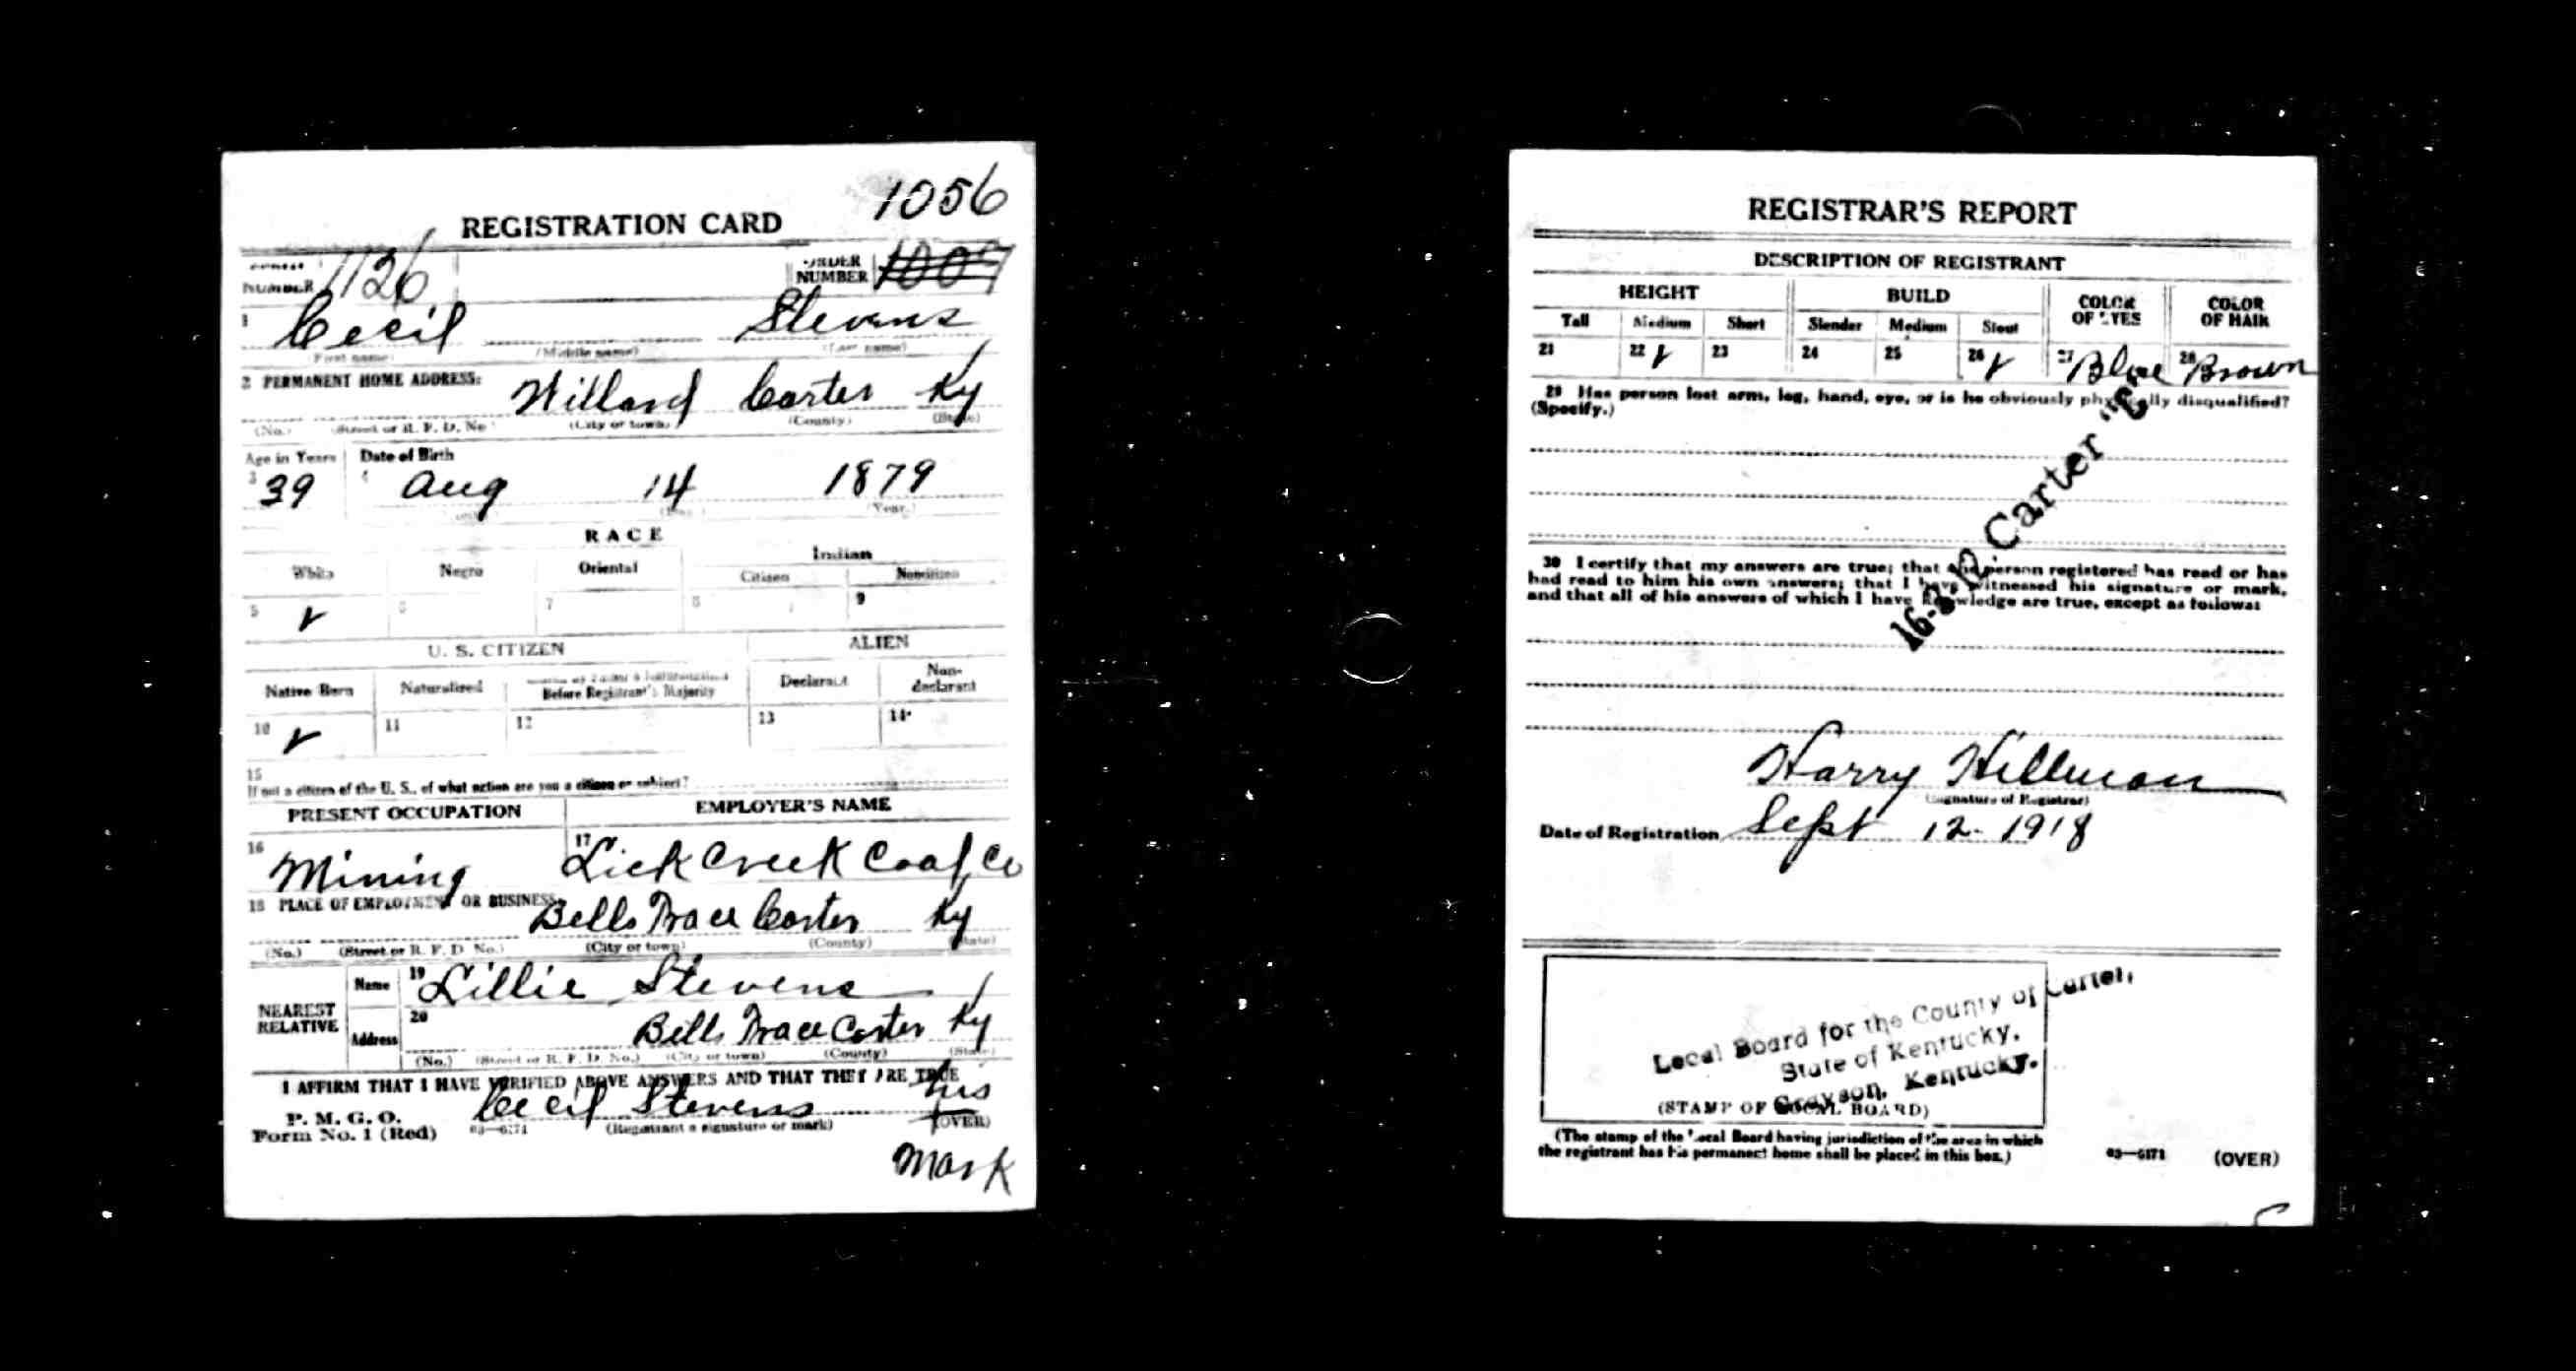 1056
REGISTRATION CARD
NUMBER 1126 ORDER NUMBER 1009
1 Cecil Stevens
(First name) (Middle name) (Last name)
2 PERMANENT HOME ADDRESS:
Willard Carter Ky
(No.) (Street or R. F. D. No.) (City or town) (County) (State)
Age in Years Date of Birth
3 39 4 Aug 14 1879
(Day.) (Year.)
RACE
White Negro Oriental Indian
Citizen Noncitizen
5 6 7 8 9
U. S. CITIZEN ALIEN
Native Born Naturalized Before Registrant's Majority Declarant Non-declarant
10 11 12 13 14
15
If not a citizen of the U. S., of what nation are you a citizen or subject?
PRESENT OCCUPATION EMPLOYER'S NAME
16 Mining 17 Lick Creek Coal Co
18 PLACE OF EMPLOYMENT OR BUSINESS:
Bells Trace Carter Ky
(No.) (Street or R. F. D. No.) (City or town) (County) (State)
NEAREST RELATIVE
Name 19 Lillie Stevens
Address 20 Bells Trace Carter Ky
(No.) (Street or R. F. D. No.) (City or town) (County) (State)
I AFFIRM THAT I HAVE VERIFIED ABOVE ANSWERS AND THAT THEY ARE TRUE
P. M. G. O.
Form No. 1 (Red) 03—6171 Cecil Stevens his
(Registrant's signature or mark) (OVER)
mark
REGISTRAR'S REPORT
DESCRIPTION OF REGISTRANT
HEIGHT BUILD COLOR OF EYES COLOR OF HAIR
Tall Medium Short Slender Medium Stout
21 22 23 24 25 26 27 Blue 28 Brown
29 Has person lost arm, leg, hand, eye, or is he obviously physically disqualified?
(Specify.)
16-3-12 Carter "C"
30 I certify that my answers are true; that the person registered has read or has
had read to him his own answers; that I have witnessed his signature or mark,
and that all of his answers of which I have knowledge are true, except as follows:
Harry Hillman
(Signature of Registrar)
Date of Registration Sept 12- 1918
Local Board for the County of Carter,
State of Kentucky.
Grayson, Kentucky.
(STAMP OF LOCAL BOARD)
(The stamp of the Local Board having jurisdiction of the area in which
the registrant has his permanent home shall be placed in this box.)
03—6171 (OVER)